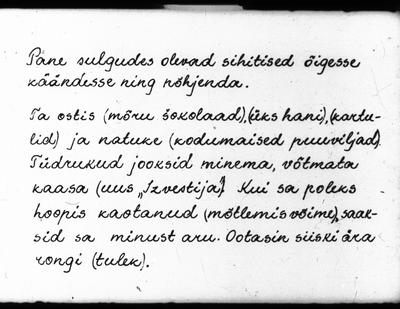 Pane sulgudes olevad sihitised õigesse
käändesse ning põhjenda.
Ta ostis (mõru šokolaad), (üks hani), (kartu-
lid) ja natuke (kodumaised puuviljad).
Tüdrukud jooksid minema, võtmata
kaasa (uus „Izvestija”). Kui sa poleks
hoopis kaotanud (mõtlemisvõime), saak-
sid sa minust aru. Ootasin siiski ära
rongi (tulek).